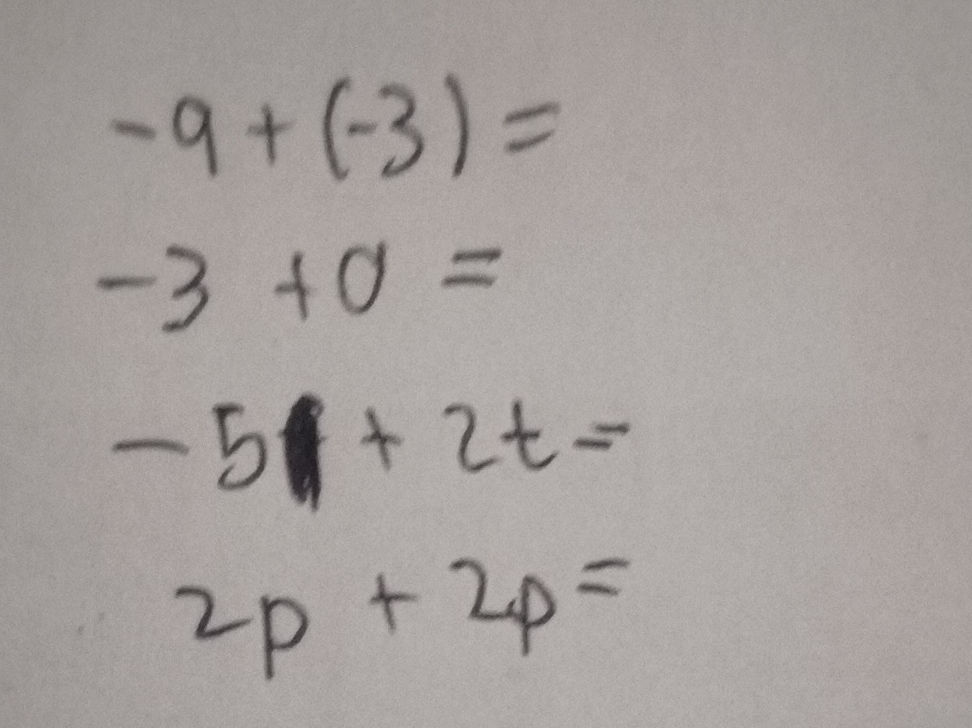 -9+(-3)=
-3 +0 =
-5 + 2t=
2p + 2p=